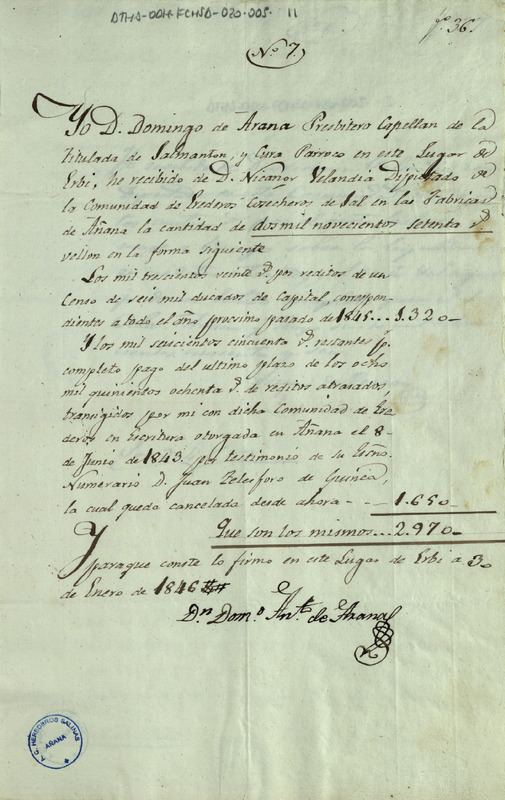 DTHA-001-FCHSD-020-005. 11
fº 36.
Nº 7.
Yo D. Domingo de Arana Presbitero Capellan de la
titulada de Salmanton, y Cura Parroco en este Lugar de
Erbi, he recibido de D. Nicanor Velandia Diputado de
la Comunidad de Erederos Cosecheros de Sal en las Fabricas
de Añana la cantidad de dos mil novecientos setenta rˢ
vellon en la forma siguiente
Los mil trescientos veinte rˢ por reditos de un
Censo de seis mil ducados de Capital, correspon-
dientes a todo el año procsimo pasado de 1845... 1.320-
Y los mil seiscientos cincuenta rˢ restantes pª
completo pago del ultimo plazo de los ocho
mil quinientos ochenta rˢ de reditos atrasados,
transigidos por mi con dicha Comunidad de Ere-
deros en Escritura otorgada en Añana el 8-
de Junio de 1843. por testimonio de su Esño.
Numerario D. Juan Telesforo de Guinea,
la cual queda cancelada desde ahora - - - 1.650-
Que son los mismos... 2.970-
Y paraque conste lo firmo en este Lugar de Erbi a 30
de Enero de 1846
Dⁿ Domº Antº de Arana
A. C. HEREDEROS SALINAS
AÑANA